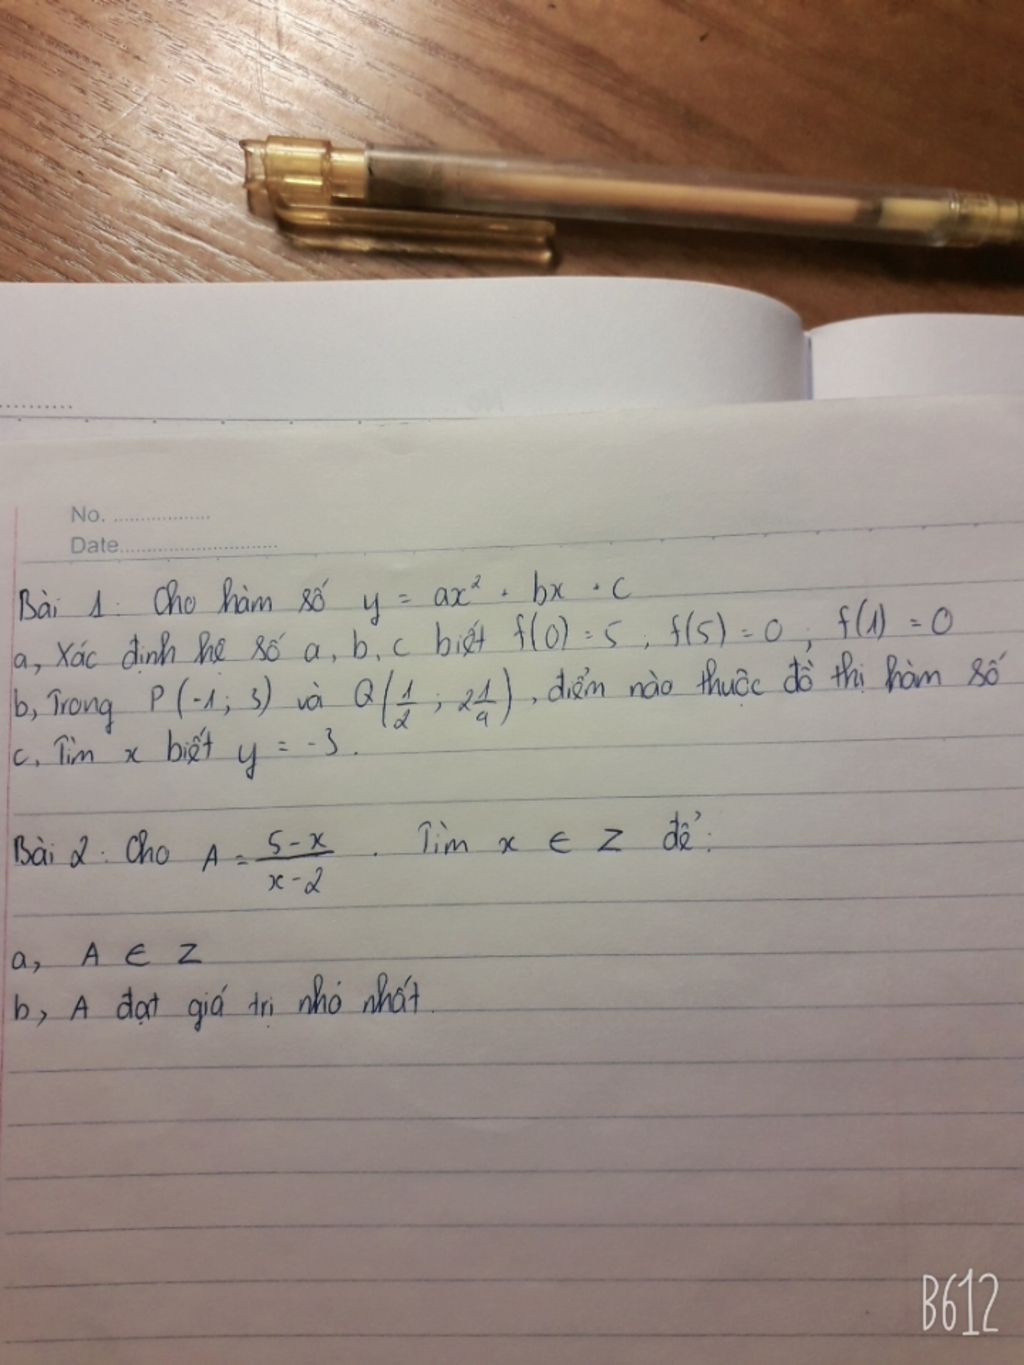 No. ..................
Date............................
Bài 1: Cho hàm số y = ax² + bx + c
a, Xác định hệ số a, b, c biết f(0) = 5; f(5) = 0; f(1) = 0
b, Trong P(-1; 3) và Q(1/2; 2 1/4), điểm nào thuộc đồ thị hàm số
c, Tìm x biết y = -3.
Bài 2: Cho A = (5-x)/(x-2). Tìm x ∈ Z để:
a, A ∈ Z
b, A đạt giá trị nhỏ nhất.
B612